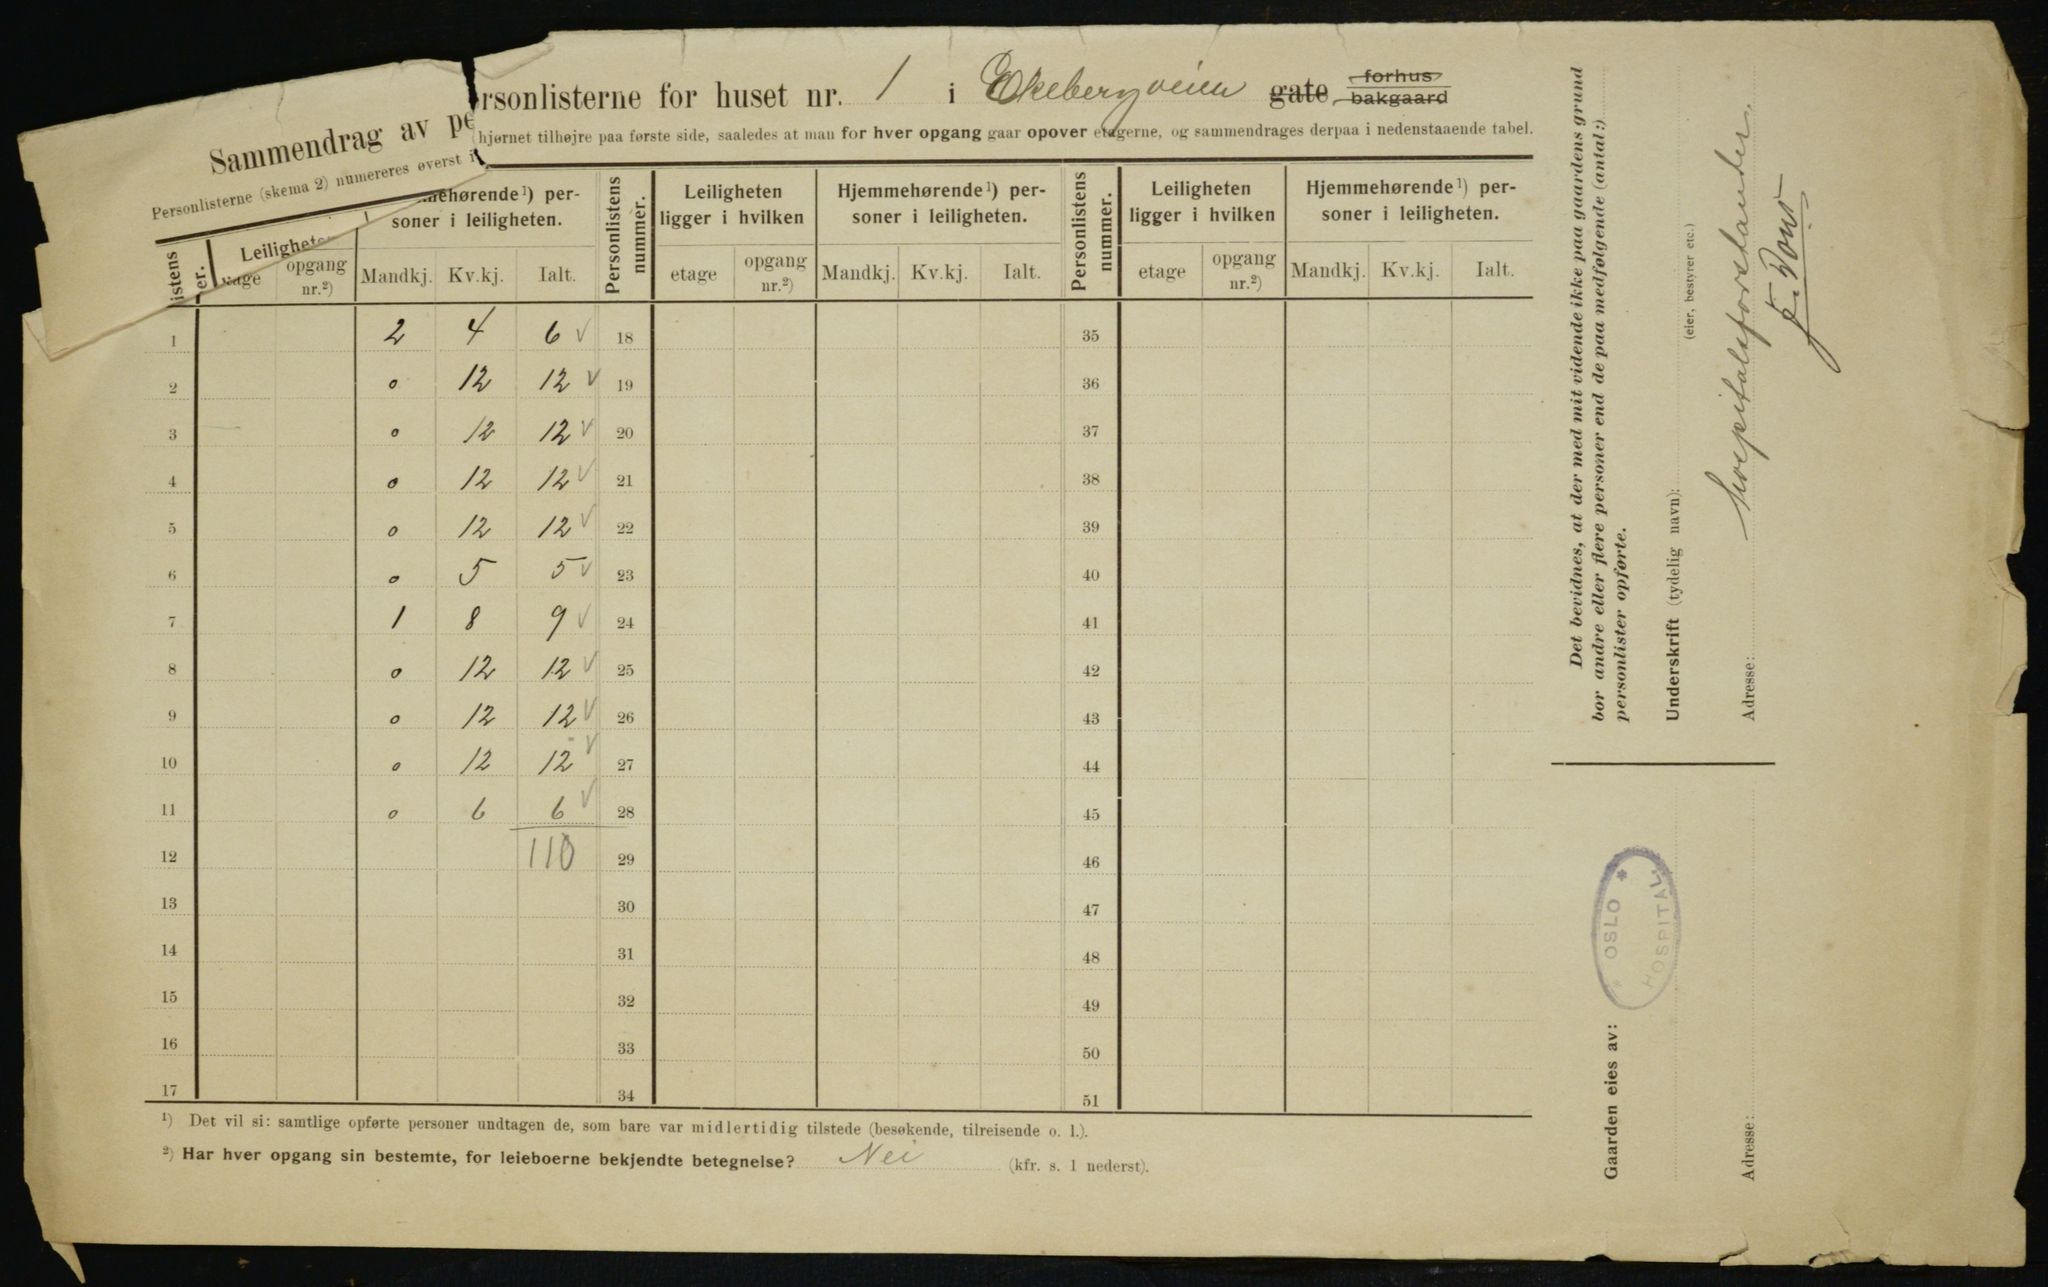 Sammendrag av personlisterne for huset nr. 1 i Ekebergveien gate forhus bakgaard
Personlisterne (skema 2) numereres øverst i hjørnet tilhøjre paa første side, saaledes at man for hver opgang gaar opover etagerne, og sammendrages derpaa i nedenstaaende tabel.
istens er. | Leiligheten | mmehørende¹) personer i leiligheten. | Personlistens nummer. | Leiligheten ligger i hvilken | Hjemmehørende¹) personer i leiligheten. | Personlistens nummer. | Leiligheten ligger i hvilken | Hjemmehørende¹) personer i leiligheten.
etage | opgang nr.²) | Mandkj. | Kv.kj. | Ialt. | etage | opgang nr.²) | Mandkj. | Kv.kj. | Ialt. | etage | opgang nr.²) | Mandkj. | Kv.kj. | Ialt.
1 2 4 6 √ 18 35
2 0 12 12 √ 19 36
3 0 12 12 √ 20 37
4 0 12 12 √ 21 38
5 0 12 12 √ 22 39
6 0 5 5 √ 23 40
7 1 8 9 √ 24 41
8 0 12 12 √ 25 42
9 0 12 12 √ 26 43
10 0 12 12 √ 27 44
11 0 6 6 √ 28 45
12 110 29 46
13 30 47
14 31 48
15 32 49
16 33 50
17 34 51
¹) Det vil si: samtlige opførte personer undtagen de, som bare var midlertidig tilstede (besøkende, tilreisende o. l.).
²) Har hver opgang sin bestemte, for leieboerne bekjendte betegnelse? Nei (kfr. s. 1 nederst).
Det bevidnes, at der med mit vidende ikke paa gaardens grund
bor andre eller flere personer end de paa medfølgende (antal:)
personlister opførte.
Underskrift (tydelig navn):
(eier, bestyrer etc.)
Hospitalsforstander.
Adresse:
Gaarden eies av:
OSLO HOSPITAL
Adresse: